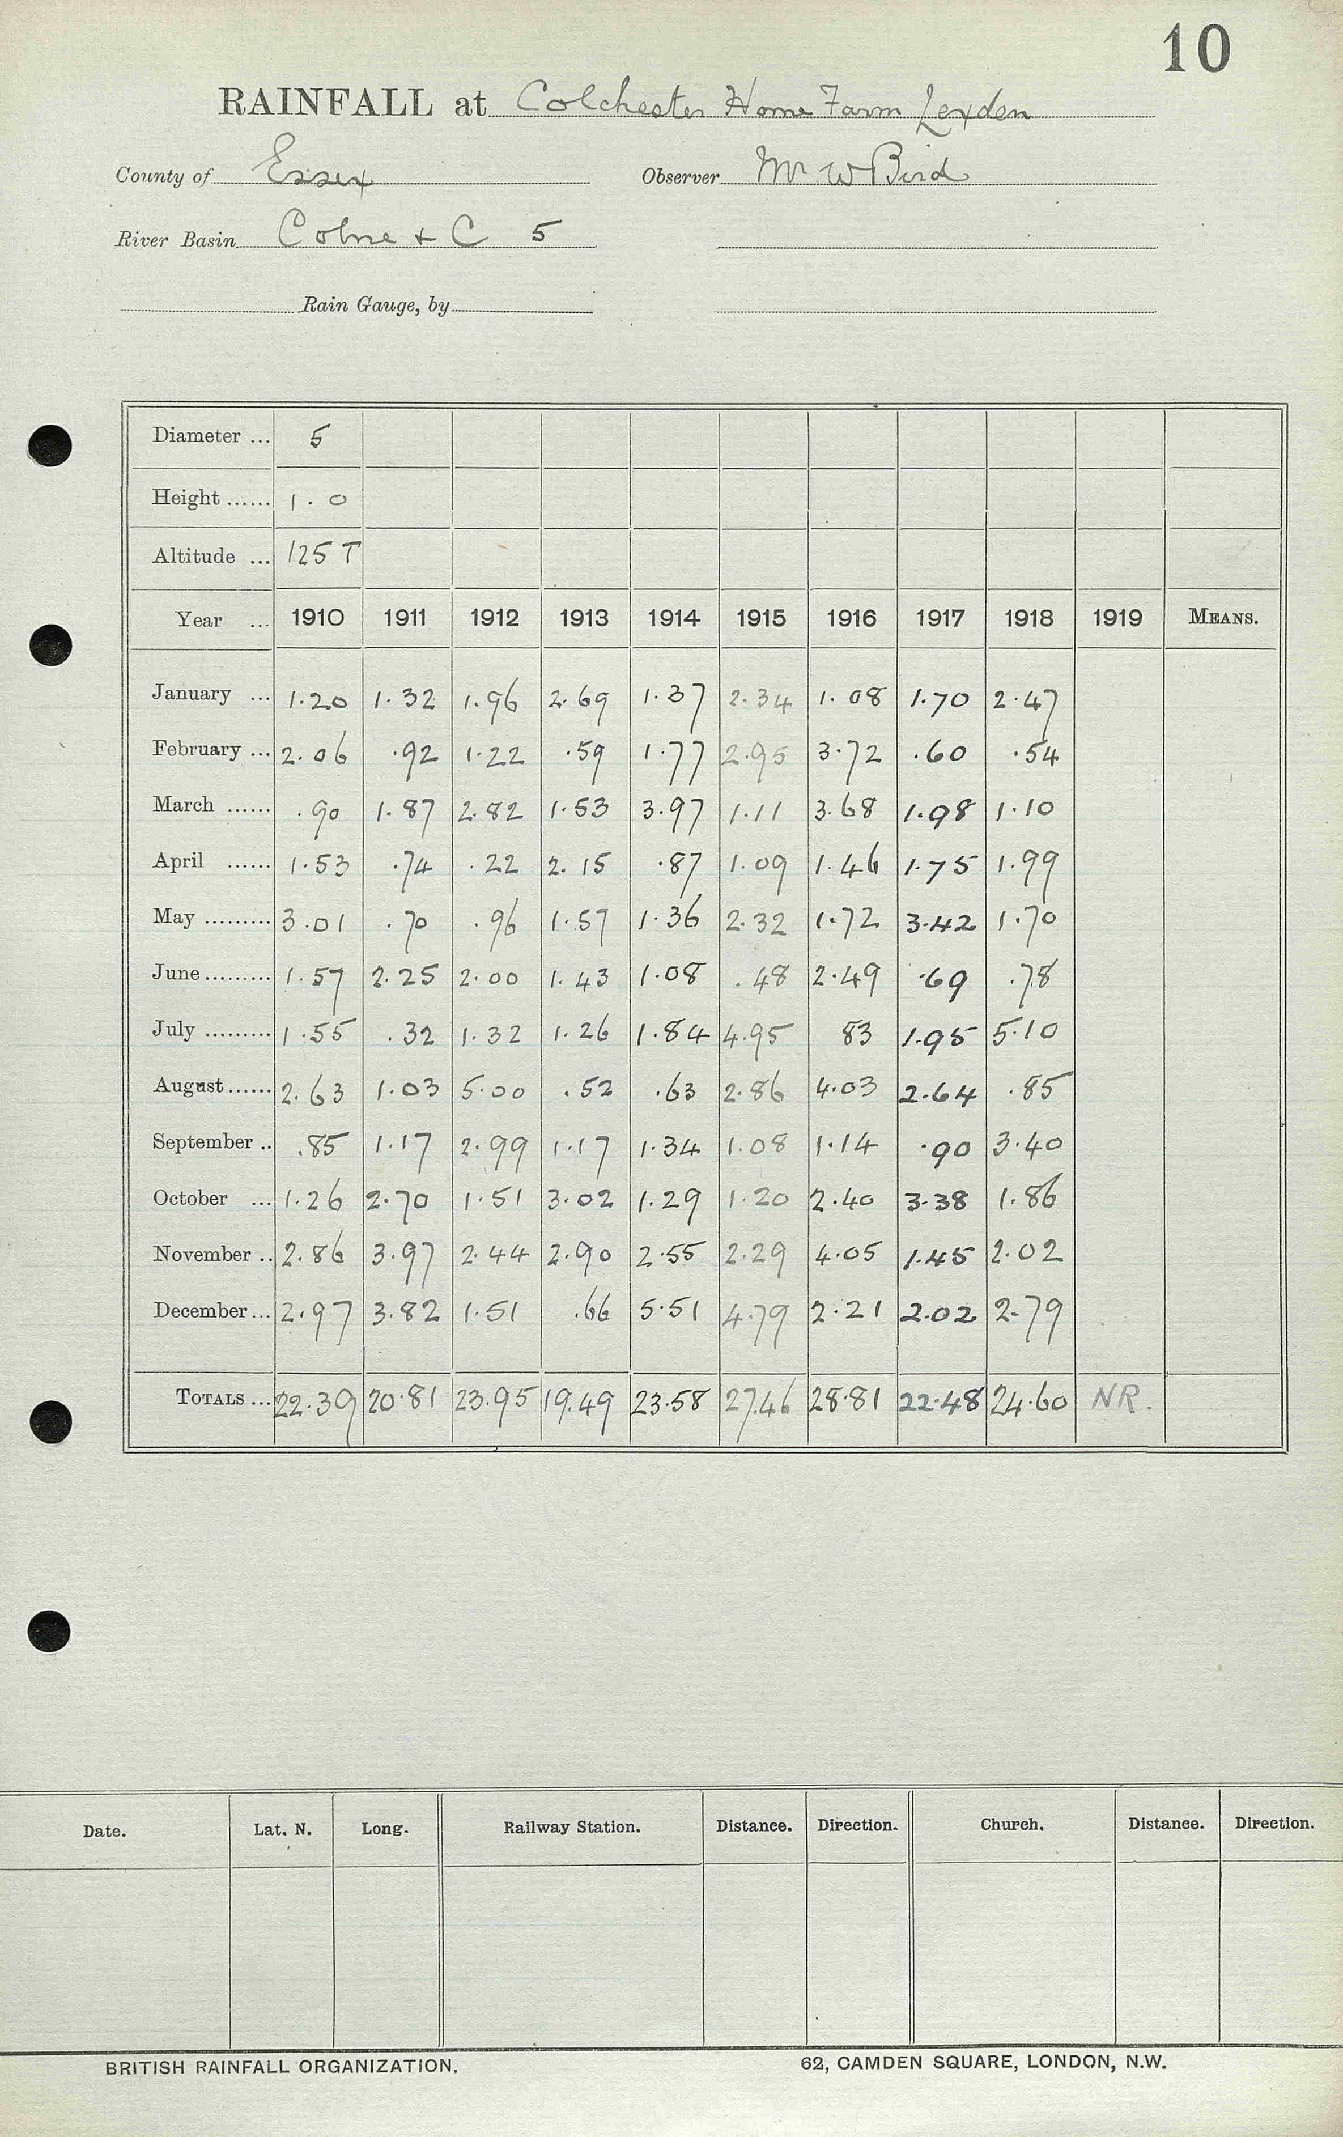 10
RAINFALL at Colchester Home Farm Lexden
County of Essex Observer Mr W Bird
River Basin Colne & C 5
Rain Gauge, by
Diameter ... 5
Height ...... 1.0
Altitude ... 125 T
Year ... 1910 1911 1912 1913 1914 1915 1916 1917 1918 1919 MEANS.
January ... 1.20 1.32 1.96 2.69 1.37 2.34 1.08 1.70 2.47
February ... 2.06 .92 1.22 .59 1.77 2.95 3.72 .60 .54
March ...... .90 1.87 2.82 1.53 3.97 1.11 3.68 1.98 1.10
April ...... 1.53 .74 .22 2.15 .87 1.09 1.46 1.75 1.99
May ......... 3.01 .70 .96 1.57 1.36 2.32 1.72 3.42 1.70
June ......... 1.57 2.25 2.00 1.43 1.08 .48 2.49 .69 .78
July ......... 1.55 .32 1.32 1.26 1.84 4.95 83 1.95 5.10
August ...... 2.63 1.03 5.00 .52 .63 2.86 4.03 2.64 .85
September .. .85 1.17 2.99 1.17 1.34 1.08 1.14 .90 3.40
October ... 1.26 2.70 1.51 3.02 1.29 1.20 2.40 3.38 1.86
November .. 2.86 3.97 2.44 2.90 2.55 2.29 4.05 1.45 2.02
December ... 2.97 3.82 1.51 .66 5.51 4.79 2.21 2.02 2.79
TOTALS ... 22.39 20.81 23.95 19.49 23.58 27.46 28.81 22.48 24.60 NR.
Date. Lat. N. Long. Railway Station. Distance. Direction. Church. Distance. Direction.
BRITISH RAINFALL ORGANIZATION. 62, CAMDEN SQUARE, LONDON, N.W.